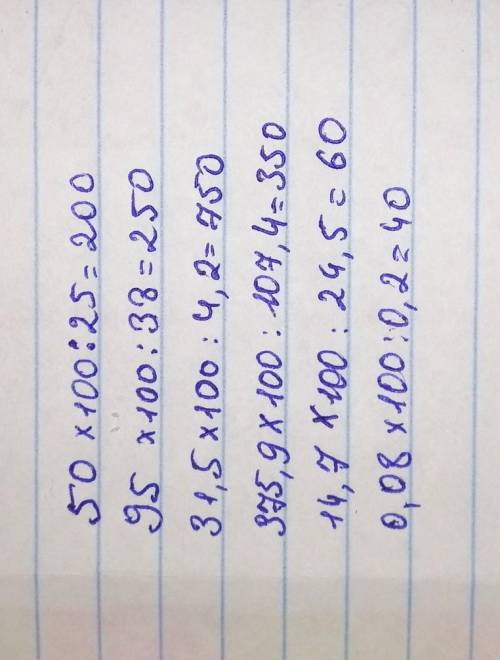 50 x 100 : 25 = 200
95 x 100 : 38 = 250
31,5 x 100 : 4,2 = 750
375,9 x 100 : 107,4 = 350
14,7 x 100 : 24,5 = 60
0,08 x 100 : 0,2 = 40